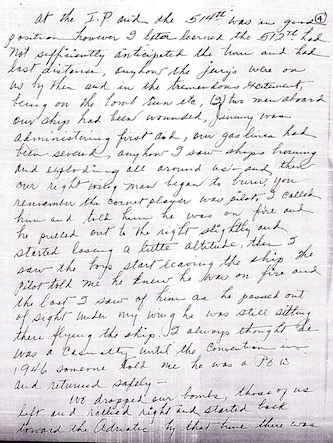 ④
at the I.P. and the 514th was in good
position however I later learned the 512th had
not sufficiently anticipated the turn and had
lost distance, anyhow the jerrys were on
us by then and in the tremendous excitement,
being on the bomb run etc, two men aboard
our ship had been wounded, Jimmy was
administering first aid, our gas lines had
been severed, anyhow I saw ships burning
and exploding all around us and then
our right wing man began to burn, you
remember the cornet player was pilot, I called
him and told him he was on fire and
he pulled out to the right slightly and
started losing a little altitude, then I
saw the boys start leaving the ship the
pilot told me he knew he was on fire and
the last I saw of him as he passed out
of sight under my wing he was still sitting
there flying the ship. I always thought he
was a casualty until the convention in
1946 someone told me he was a P.O.W.
and returned safely —
We dropped our bombs, those of us
left and rallied right and started back
toward the Adriatic by that time there was